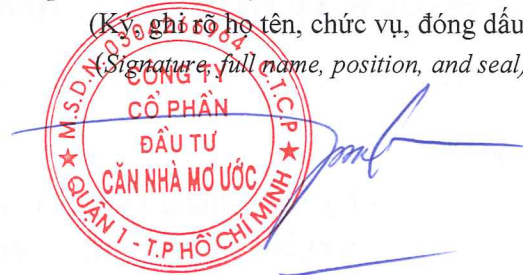 (Ký, ghi rõ họ tên, chức vụ, đóng dấu
(Signature, full name, position, and seal)
M.S.D.N: C.T.C.P
CÔNG TY
CỔ PHẦN
ĐẦU TƯ
CĂN NHÀ MƠ ƯỚC
QUẬN 1 - T.P HỒ CHÍ MINH